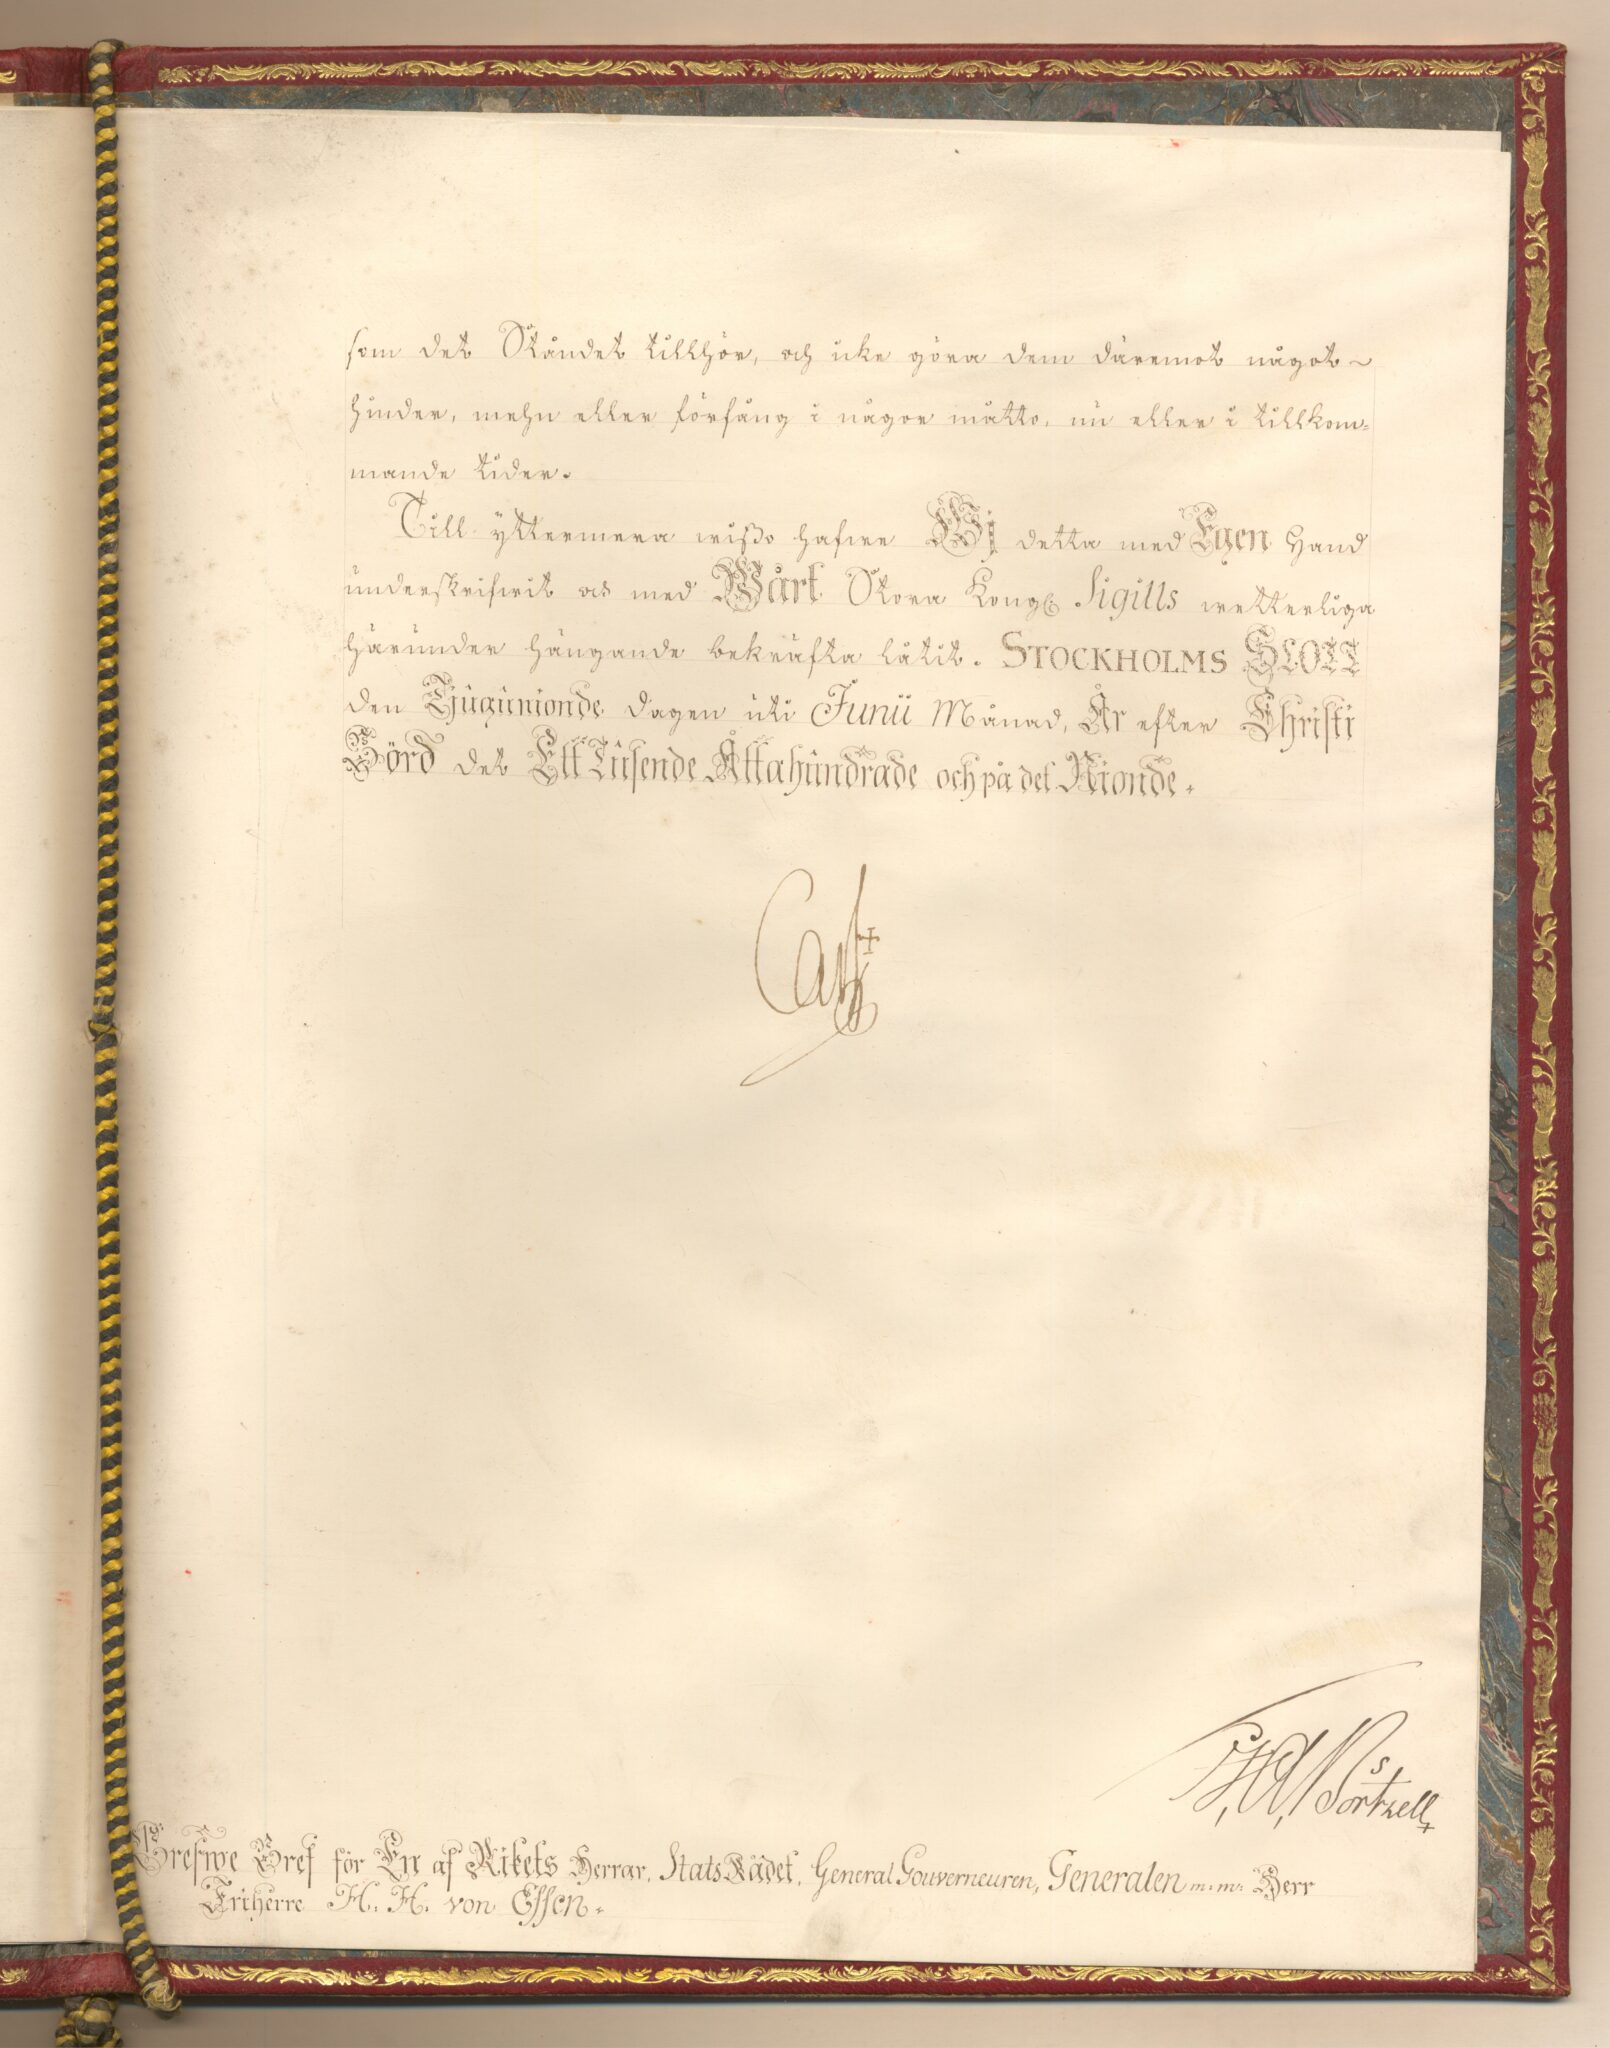 som det Ståndet tillhör, och icke göra dem däremot något ~
hinder, mehn eller förfång i någor måtto, nu eller i tillkom=
mande tider.
Till yttermera wißo hafwe Wij detta med Egen Hand
underskrifwit och med Wårt Stora Kongl. Sigills wetterliga
härunder hängande bekräfta låtit. STOCKHOLMS SLOTT
den Tjugunionde dagen uti Junii Månad, År efter Christi
Börd det Ett Tusende Åttahundrade och på det Nionde.
Carl
Grefwe Bref för En af Rikets Herrar, StatsRådet, General Gouverneuren, Generalen m. m. Herr
Friherre H. H. von Essen.